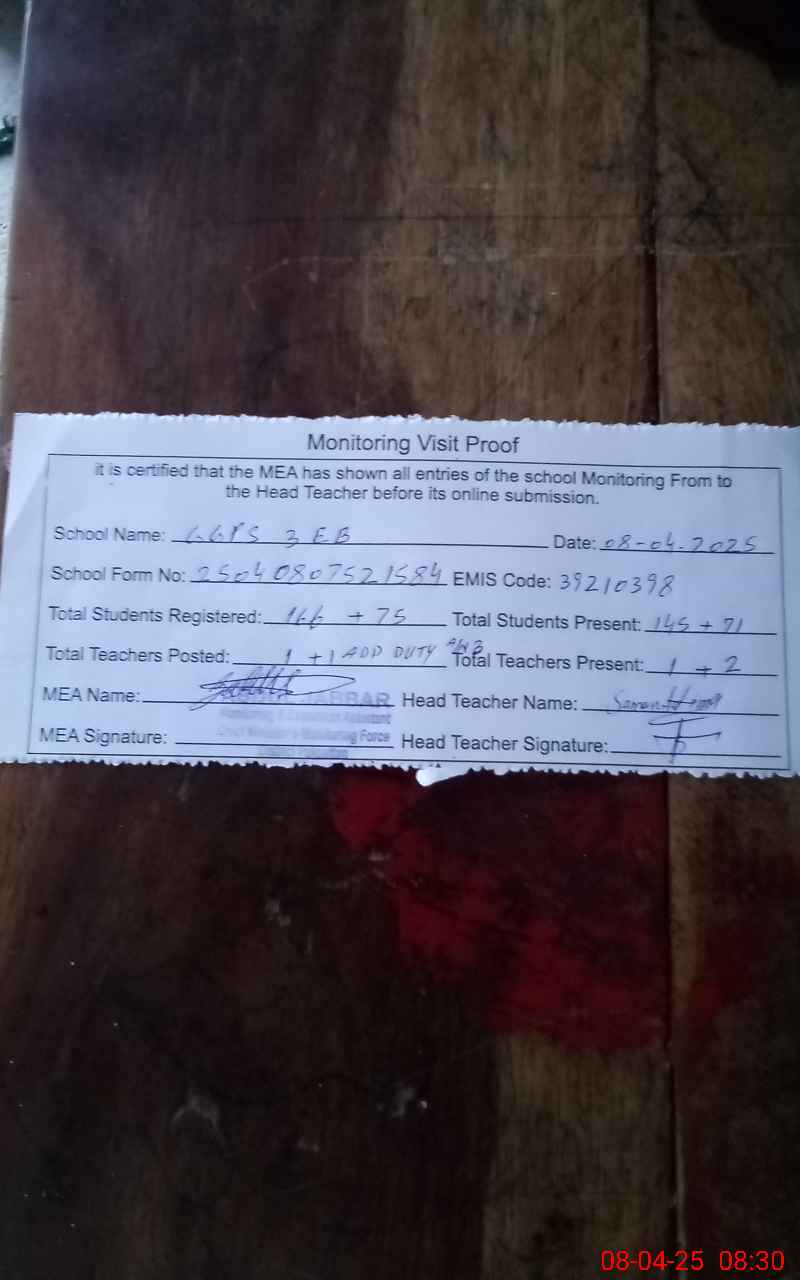 Monitoring Visit Proof
it is certified that the MEA has shown all entries of the school Monitoring From to
the Head Teacher before its online submission.
School Name: GGPS 3 EB Date: 08-04-2025
School Form No: 25040807521584 EMIS Code: 39210398
Total Students Registered: 166 + 75 Total Students Present: 145 + 71
Total Teachers Posted: 1 + 1 ADD DUTY Total Teachers Present: 1 + 2
MEA Name: JABBAR Head Teacher Name:
Monitoring & Evaluation Assistant
MEA Signature: Chief Minister's Monitoring Force Head Teacher Signature:
08-04-25 08:30